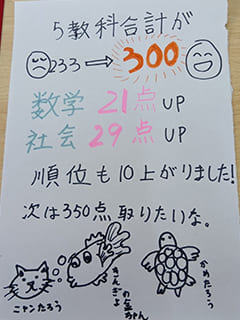 5教科合計が
233⇒300
数学 21点 UP
社会 29点 UP
順位も10上がりました!
次は350点取りたいな。
ニャンたろう
きんぎょの金ちゃん
かめたろう